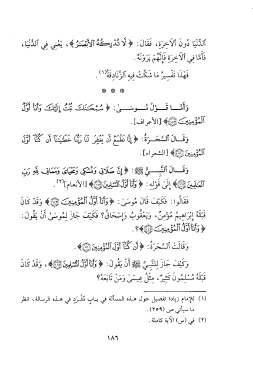 الدُّنْيَا دُونَ الآخِرَةِ، فَقَالَ: ﴿ لَا تُدْرِكُهُ الْأَبْصَارُ ﴾، يَعْنِي فِي الدُّنْيَا،
فَأَمَّا فِي الآخِرَةِ فَإِنَّهُمْ يَرَوْنَهُ.
فَهَذَا تَفْسِيرُ مَا شَكَّتْ فِيهِ الزَّنَادِقَةُ(١).
* * *
وَأَمَّا قَوْلُ مُوسَى: ﴿ سُبْحَانَكَ تُبْتُ إِلَيْكَ وَأَنَا أَوَّلُ
الْمُؤْمِنِينَ ﴾ [الأعراف].
وَقَالَ السَّحَرَةُ: ﴿ إِنَّا نَطْمَعُ أَنْ يَغْفِرَ لَنَا رَبُّنَا خَطَايَانَا أَنْ كُنَّا أَوَّلَ
الْمُؤْمِنِينَ ﴾ [الشعراء].
وَقَالَ النَّبِيُّ ﷺ: ﴿ إِنَّ صَلَاتِي وَنُسُكِي وَمَحْيَايَ وَمَمَاتِي لِلَّهِ رَبِّ
الْعَالَمِينَ ﴾ إِلَى قَوْلِهِ: ﴿ وَأَنَا أَوَّلُ الْمُسْلِمِينَ ﴾ [الأنعام](٢).
فَقَالُوا: فَكَيْفَ قَالَ مُوسَى: ﴿ وَأَنَا أَوَّلُ الْمُؤْمِنِينَ ﴾ وَقَدْ كَانَ
قَبْلَهُ إِبْرَاهِيمُ مُؤْمِنٌ، وَيَعْقُوبُ وَإِسْحَاقُ؟ فَكَيْفَ جَازَ لِمُوسَى أَنْ يَقُولَ:
﴿ وَأَنَا أَوَّلُ الْمُؤْمِنِينَ ﴾؟.
وَقَالَتِ السَّحَرَةُ: ﴿ أَنْ كُنَّا أَوَّلَ الْمُؤْمِنِينَ ﴾.
وَكَيْفَ جَازَ لِلنَّبِيِّ ﷺ أَنْ يَقُولَ: ﴿ وَأَنَا أَوَّلُ الْمُسْلِمِينَ ﴾، وَقَدْ كَانَ
قَبْلَهُ مُسْلِمُونَ كَثِيرٌ، مِثْلُ عِيسَى وَمَنْ تَابَعَهُ؟
(١) للإمام زيادة تفصيل حول هذه المسألة في باب مُفْرَدٍ في هذه الرسالة، انظر
ما سيأتي ص (٢٥٩).
(٢) في (س) الآية كاملة.
١٨٦